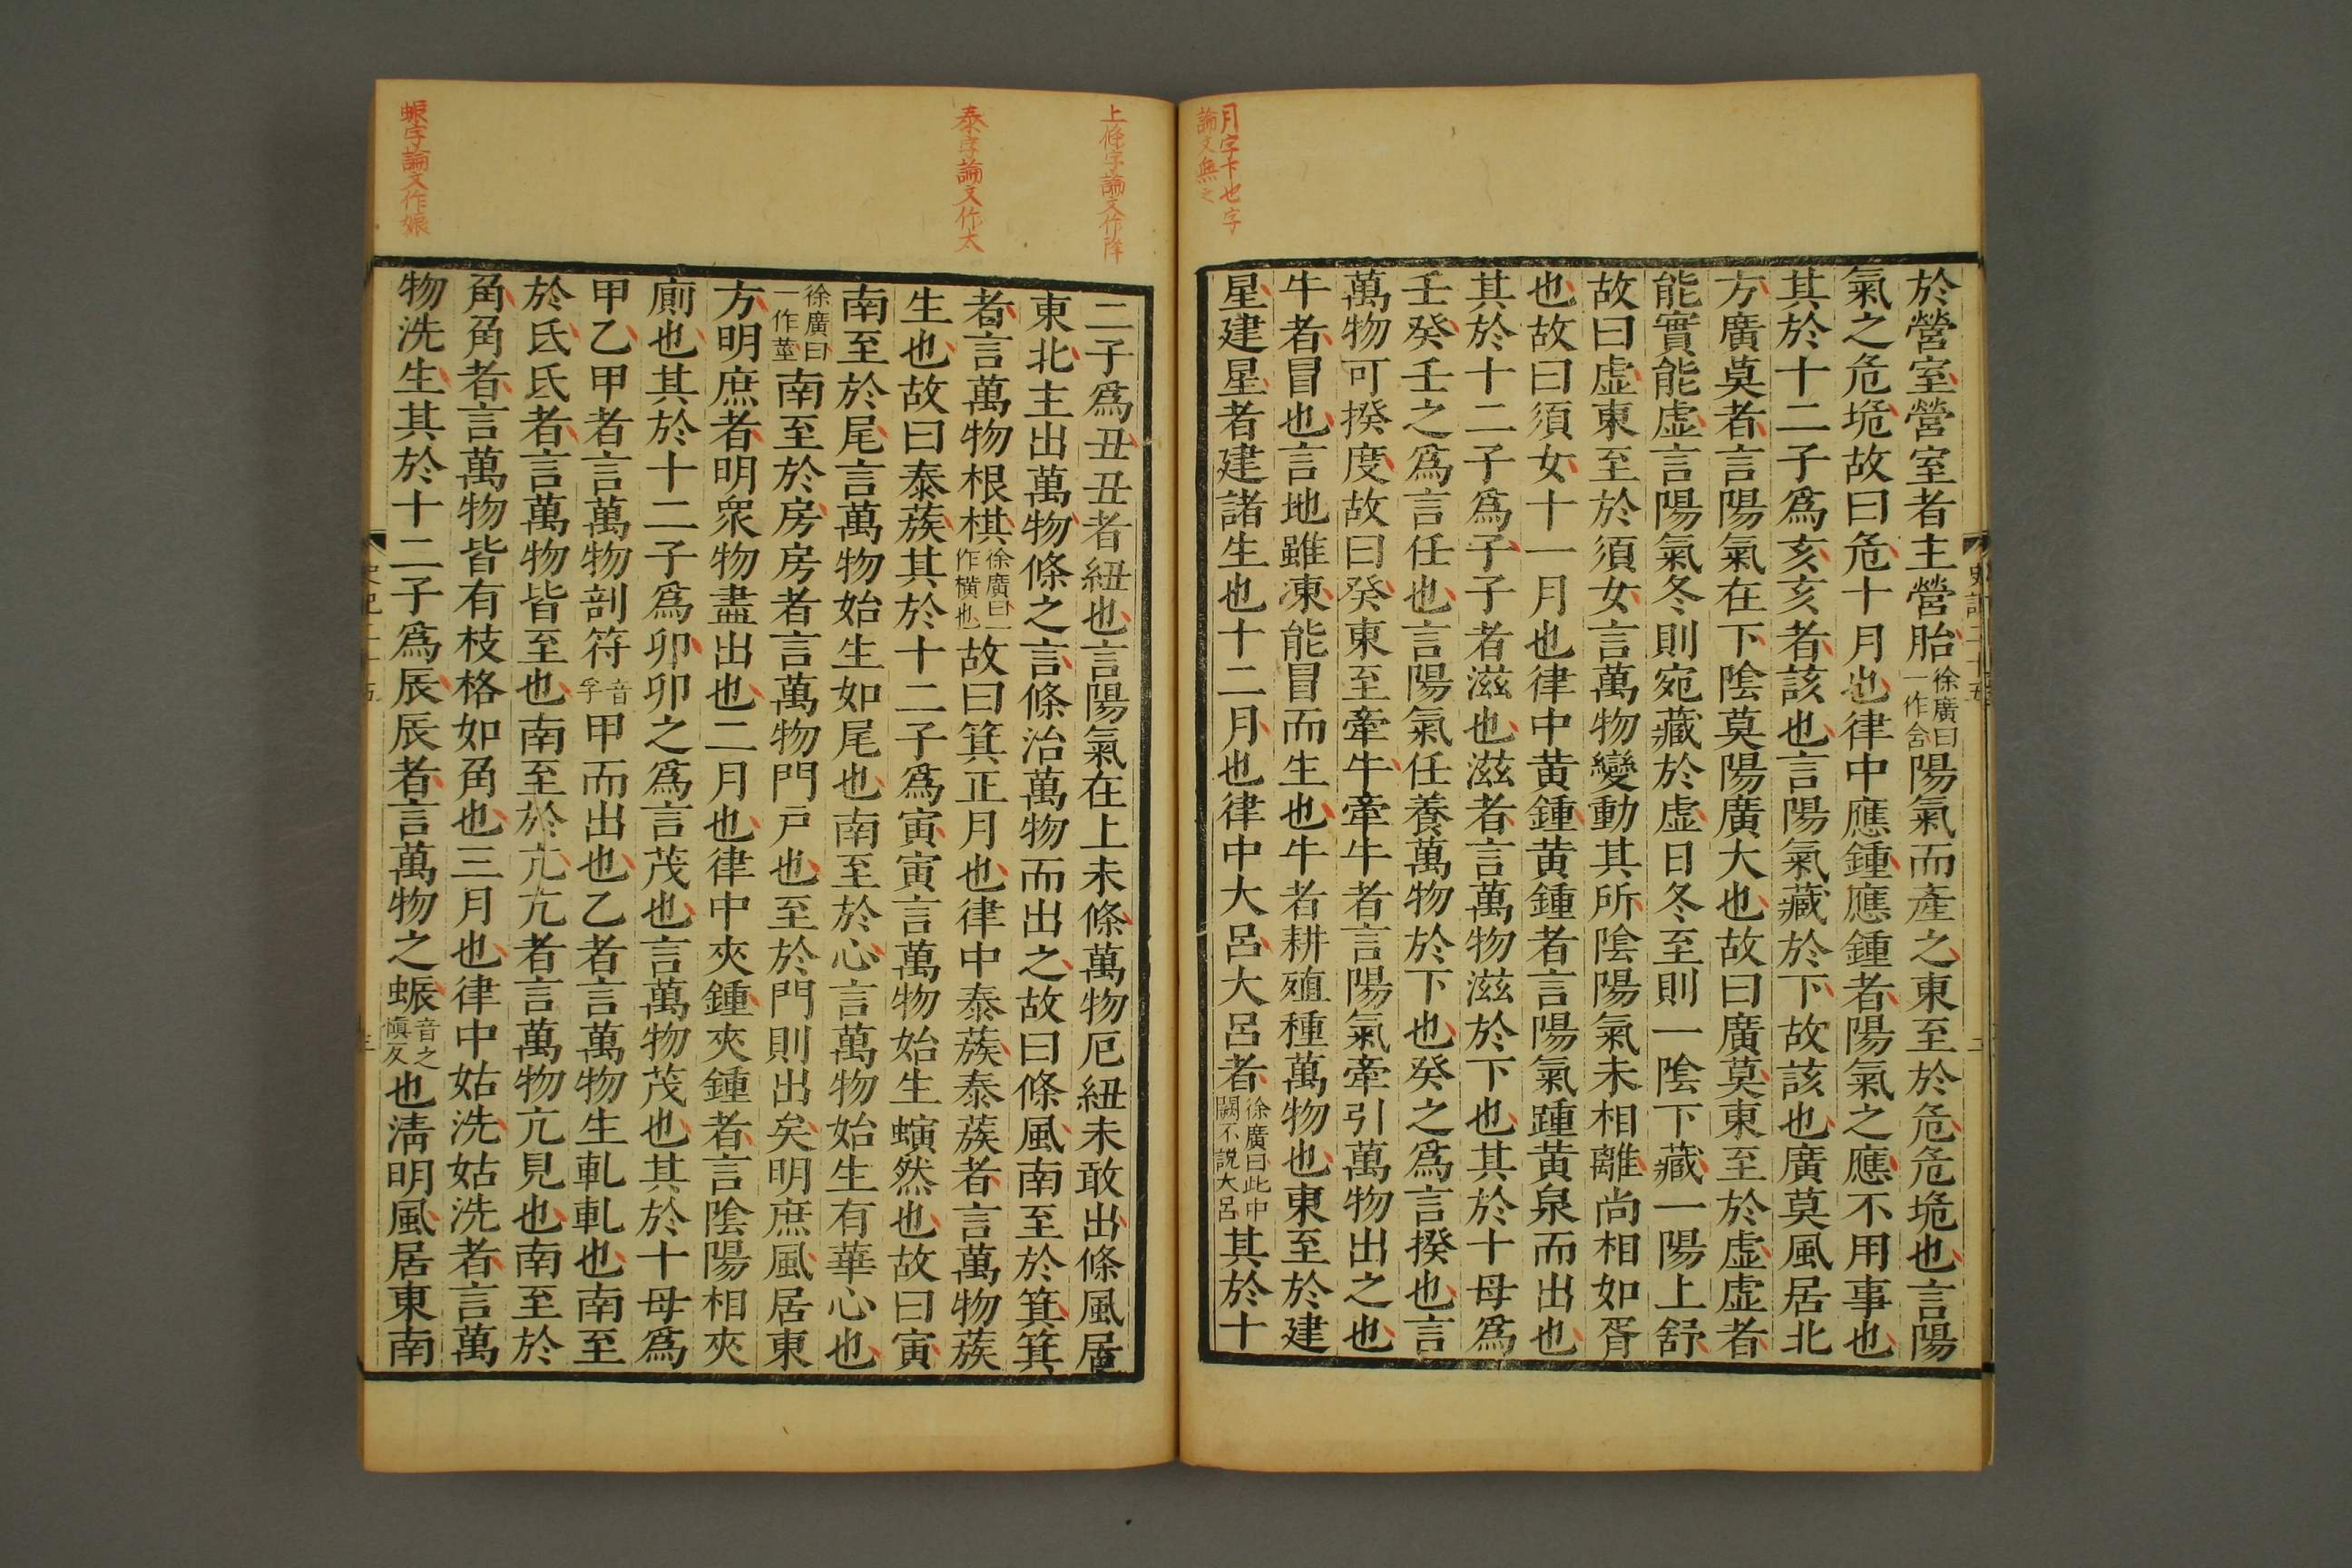 月字下也字
論文無之
於營室營室者主營胎徐廣曰一作含陽氣而產之東至於危危垝也言陽
氣之危垝故曰危十月也律中應鍾應鍾者陽氣之應不用事也
其於十二子爲亥亥者該也言陽氣藏於下故該也廣莫風居北
方廣莫者言陽氣在下陰莫陽廣大也故曰廣莫東至於虛虛者
能實能虛言陽氣冬則宛藏於虛日冬至則一陰下藏一陽上舒
故曰虛東至於須女言萬物變動其所陰陽氣未相離尚相如胥
也故曰須女十一月也律中黃鍾黃鍾者言陽氣踵黃泉而出也
其於十二子爲子子者滋也滋者言萬物滋於下也其於十母爲
壬癸壬之爲言任也言陽氣任養萬物於下也癸之爲言揆也言
萬物可揆度故曰癸東至牽牛牽牛者言陽氣牽引萬物出之也
牛者冒也言地雖凍能冒而生也牛者耕殖種萬物也東至於建
星建星者建諸生也十二月也律中大呂大呂者徐廣曰此中闕不說大呂其於十
上條字論文作降
泰字論文作太
蜄字論文作娠
二子爲丑丑者紐也言陽氣在上未條萬物厄紐未敢出條風居
東北主出萬物條之言條治萬物而出之故曰條風南至於箕箕
者言萬物根棋徐廣曰一作橫也故曰箕正月也律中泰蔟泰蔟者言萬物蔟
生也故曰泰蔟其於十二子爲寅寅言萬物始生螾然也故曰寅
南至於尾言萬物始生如尾也南至於心言萬物始生有華心也
徐廣曰一作莖南至於房房者言萬物門戶也至於門則出矣明庶風居東
方明庶者明衆物盡出也二月也律中夾鍾夾鍾者言陰陽相夾
廁也其於十二子爲卯卯之爲言茂也言萬物茂也其於十母爲
甲乙甲者言萬物剖符音孚甲而出也乙者言萬物生軋軋也南至
於氐氐者言萬物皆至也南至於亢亢者言萬物亢見也南至於
角角者言萬物皆有枝格如角也三月也律中姑洗姑洗者言萬
物洗生其於十二子爲辰辰者言萬物之蜄音之慎反也淸明風居東南